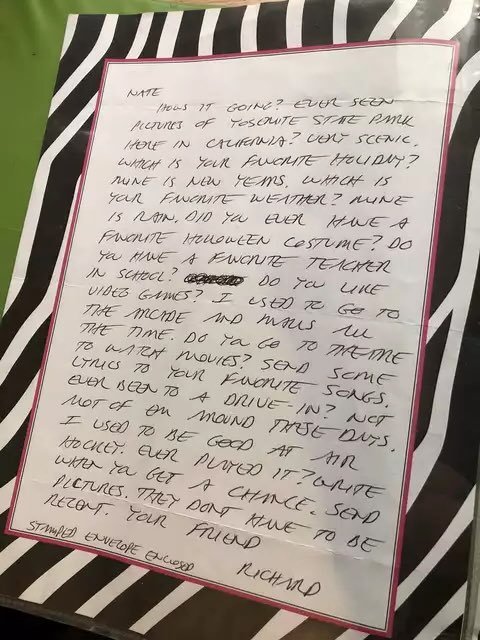 NATE
HOWS IT GOING? EVER SEEN
PICTURES OF YOSEMITE STATE PARK
HERE IN CALIFORNIA? VERY SCENIC.
WHICH IS YOUR FAVORITE HOLIDAY?
MINE IS NEW YEARS. WHICH IS
YOUR FAVORITE WEATHER? MINE
IS RAIN. DID YOU EVER HAVE A
FAVORITE HOLLOWEEN COSTUME? DO
YOU HAVE A FAVORITE TEACHER
IN SCHOOL? DO YOU LIKE
VIDEO GAMES? I USED TO GO TO
THE ARCADE AND MALLS ALL
THE TIME. DO YOU GO TO THEATRE
TO WATCH MOVIES? SEND SOME
LYRICS TO YOUR FAVORITE SONGS.
EVER BEEN TO A DRIVE-IN? NOT
ALOT OF EM AROUND THESE DAYS.
I USED TO BE GOOD AT AIR
HOCKEY. EVER PLAYED IT? WRITE
WHEN YOU GET A CHANCE. SEND
PICTURES. THEY DONT HAVE TO BE
RECENT. YOUR FRIEND
RICHARD
STAMPED ENVELOPE ENCLOSED